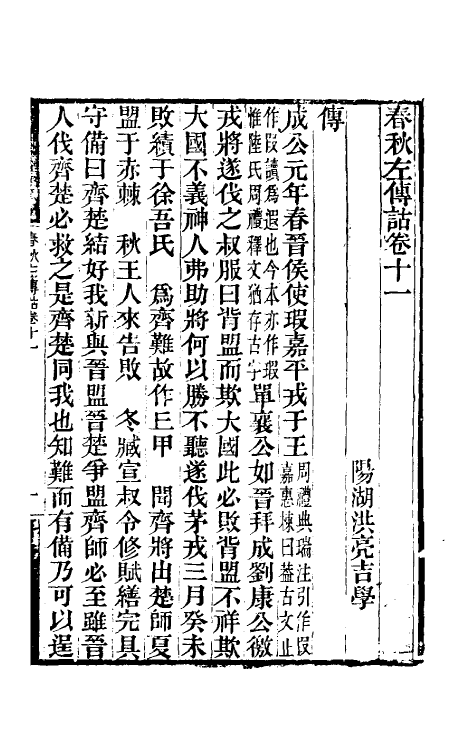 春秋左傳詁卷十一
陽湖洪亮吉學
傳
成公元年春晉侯使瑕嘉平戎于王周禮典瑞注引作叚嘉惠棟曰葢古文止
作叚讀爲遐也今本亦作瑕惟陸氏周禮釋文猶存古字單襄公如晉拜成劉康公徼
戎將遂伐之叔服曰背盟而欺大國此必敗背盟不祥欺
大國不義神人弗助將何以勝不聽遂伐茅戎三月癸未
敗績于徐吾氏　爲齊難故作丘甲　聞齊將出楚師夏
盟于赤棘　秋王人來告敗　冬臧宣叔令修賦繕完具
守備曰齊楚結好我新與晉盟晉楚爭盟齊師必至雖晉
人伐齊楚必救之是齊楚同我也知難而有備乃可以逞
春秋左傳詁卷十一　一